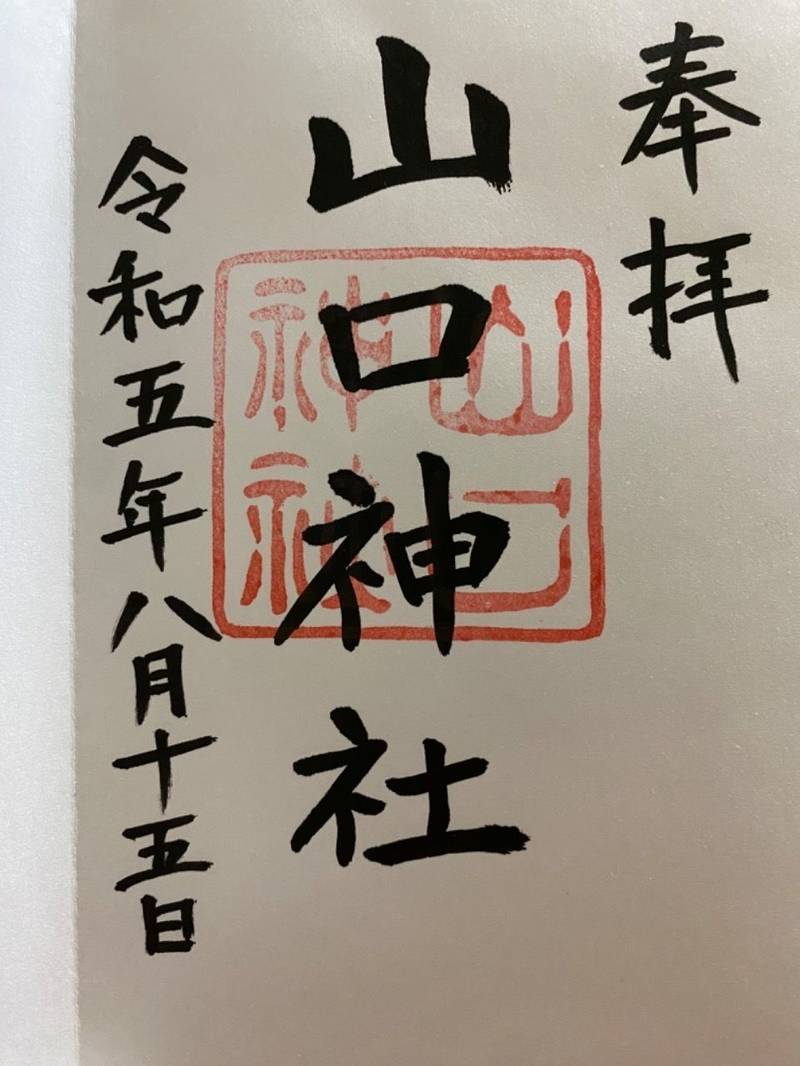 奉拝
山口神社
令和五年八月十五日
山口
神社